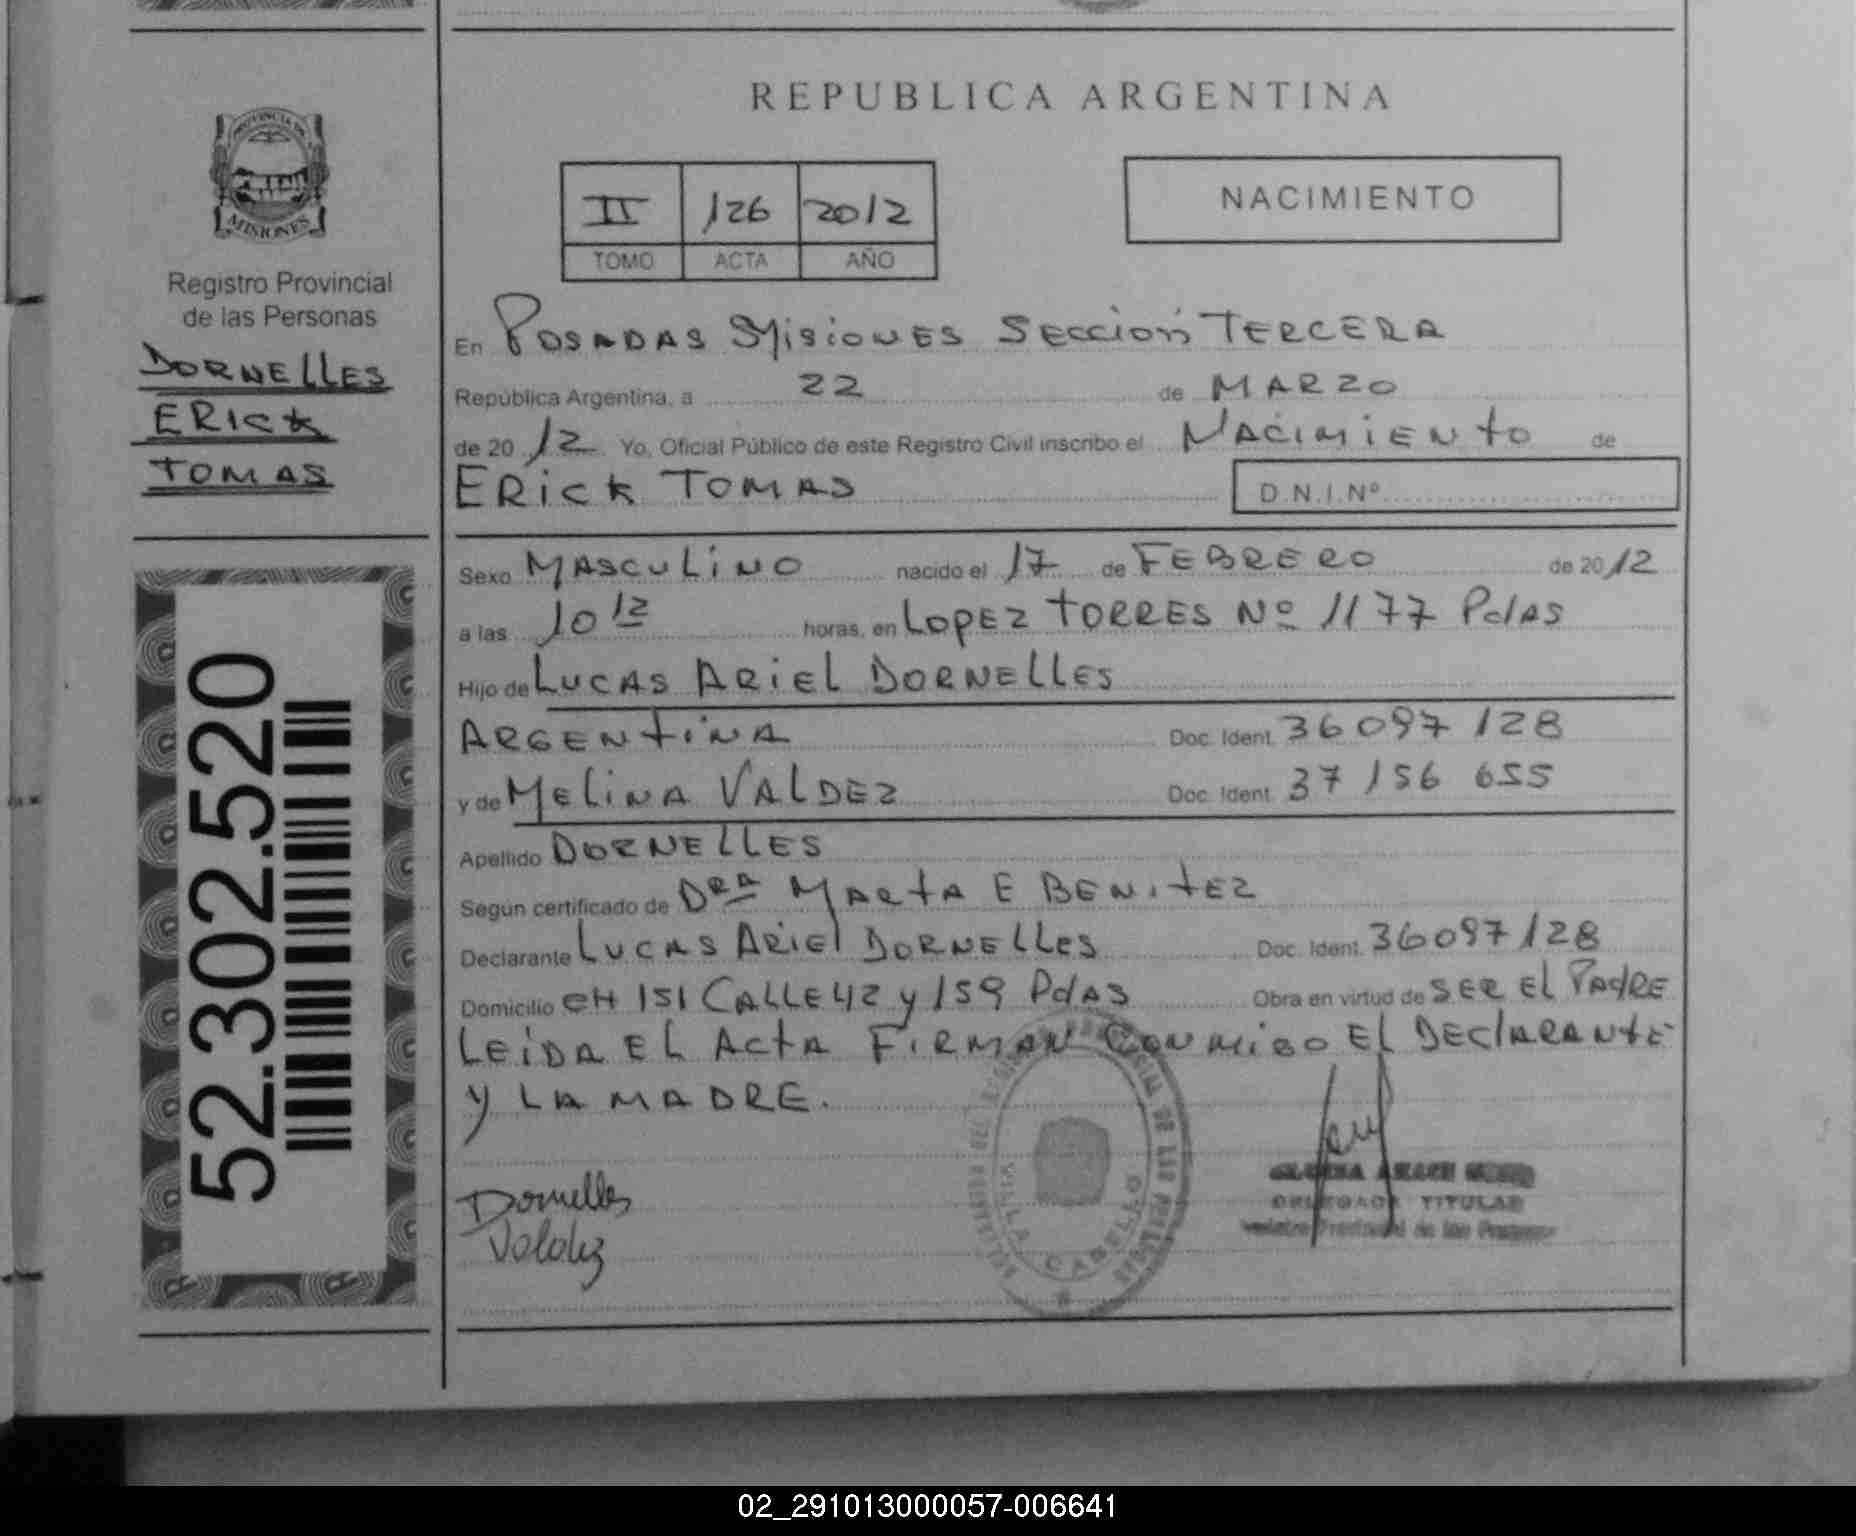 PROVINCIA DE
MISIONES
Registro Provincial
de las Personas
DORNELLES
ERICK
TOMAS
52.302.520
REPUBLICA ARGENTINA
II 126 2012
TOMO ACTA AÑO
NACIMIENTO
En POSADAS MISIONES SECCIÓN TERCERA
República Argentina, a 22 de MARZO
de 20 12 Yo, Oficial Público de este Registro Civil inscribo el NACIMIENTO de
ERICK TOMAS D.N.I.Nº
Sexo MASCULINO nacido el 17 de FEBRERO de 2012
a las 10 12 horas, en LOPEZ TORRES Nº 1177 PdAS
Hijo de LUCAS ARIEL DORNELLES
ARGENTINA Doc. Ident. 36097128
y de MELINA VALDEZ Doc. Ident. 37 156 655
Apellido DORNELLES
Según certificado de DRA MARTA E BENITEZ
Declarante LUCAS ARIEL DORNELLES Doc. Ident. 36097128
Domicilio CH 151 CALLE 42 y 159 PdAS Obra en virtud de SER EL PADRE
LEIDA EL ACTA FIRMAN CONMIGO EL DECLARANTE
y LA MADRE.
Dornelles
Valdez
VILLA CABELLO
DELEGADA TITULAR
Registro Provincial de las Personas
02_291013000057-006641